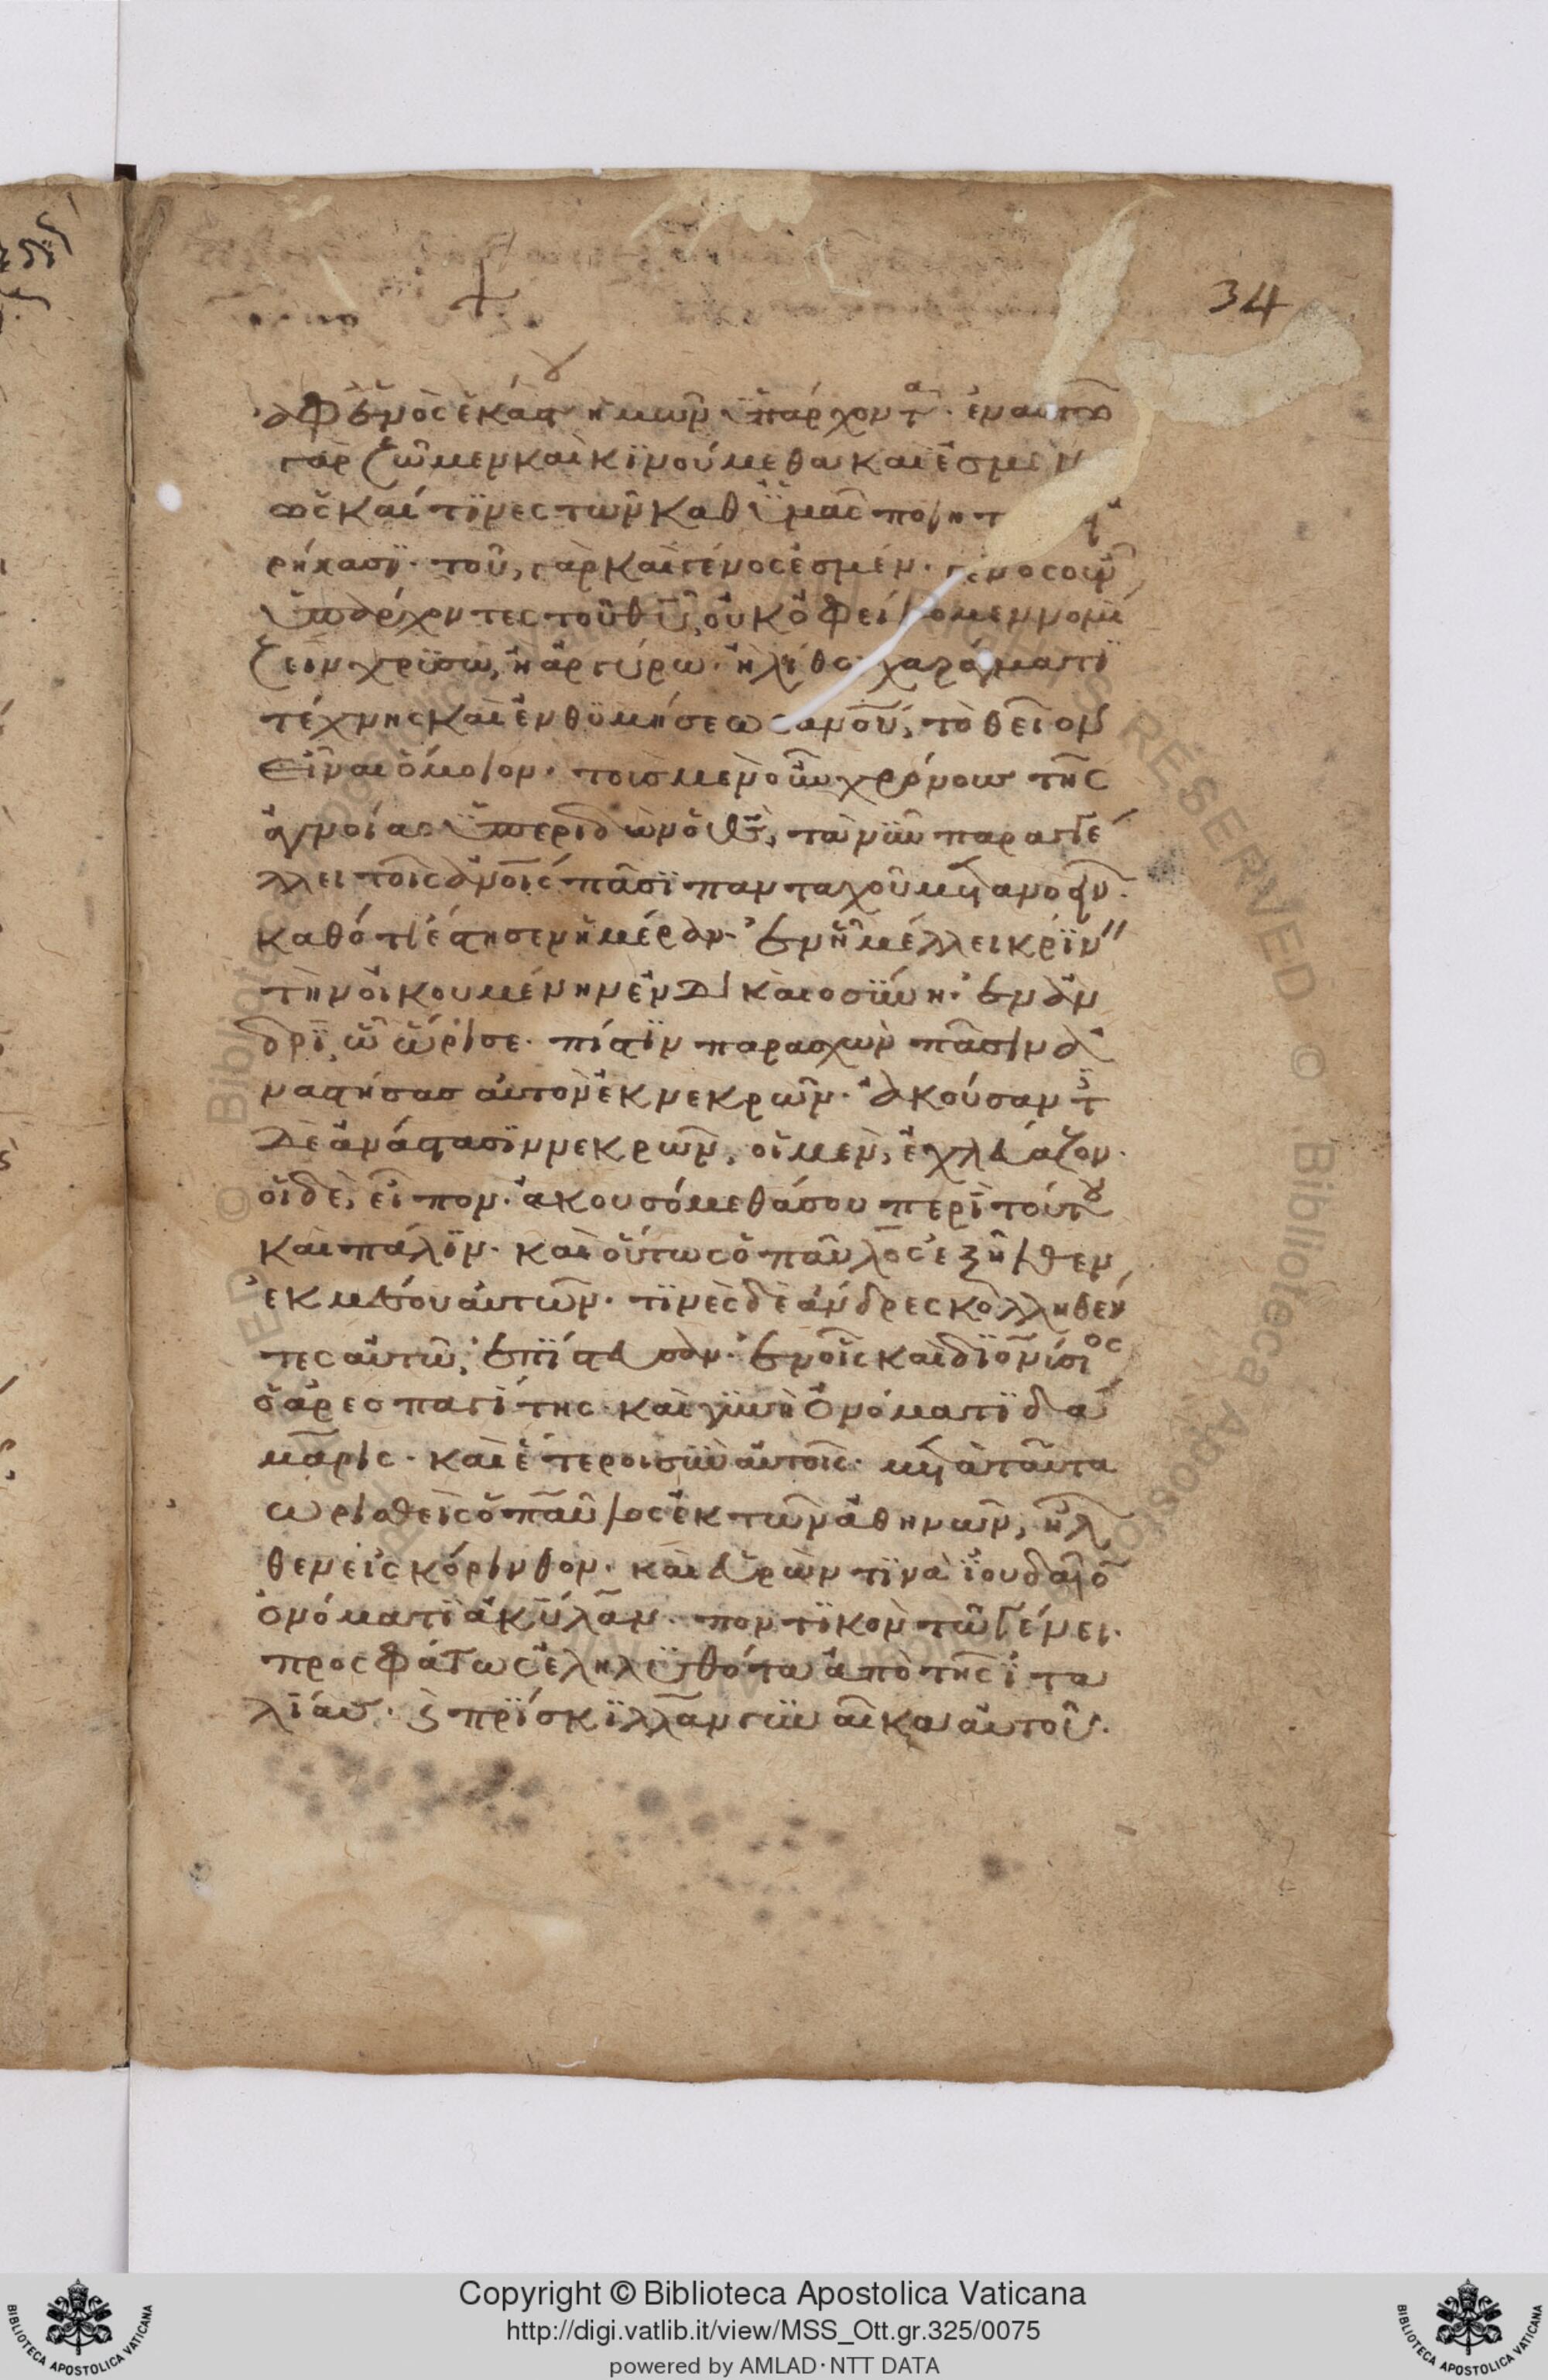 34
ἀφ ἑνὸς ἑκάστου ἡμῶν ὑπάρχοντα. ἐν αυτῶ
γὰρ ζῶμεν καὶ κϊνούμεθα καὶ ἐσμὲν
ὡς καί τϊνες τῶν καθ ὑμᾶς ποιητ
ρήκασϊ. τοῦ, γὰρ καὶ γένος ἐσμέν. γένος οὖν
ὑπάρχοντες τοῦ θυ, οὐκ ὀφείλομεν νομί
ζειν χρϋσῶ, ἢ ἀργύρω. ἢ λίθω χαράγματϊ
τέχνης καὶ ἐνθϋμήσεως ανου, τὸ θεῖον
εἶναι ὅμοιον. τοὺσ μὲν οὖν χρόνουσ τῆς
ἀγνοίας ὑπεριδὼν ὁ θς, τὰ νῦν παραγγέ
λλει τοῖς ἀνοις πᾶσϊ πανταχοῦ μετανοεῖν.
καθότι ἔστησεν ἡμέραν. ἐν ἧ μέλλει κρίν
τὴν οἰκουμένην ἐν δικαιοσϋνη. ἐν ἀν
δρϊ, ὧ ὥρισε. πίστϊν παρασχὼν πᾶσιν ἀ
ναστήσασ αὐτὸν ἐκ νεκρῶν. ἀκούσαντ
δὲ ἀνάστασϊν νεκρῶν, οἱ μὲν, ἐχλεύαζον.
οἱ δὲ, εἶπον. ἀκουσόμεθά σου περὶ τούτου
καὶ πάλϊν. καὶ οὕτως ὁ παῦλος ἐξῆλθεν,
ἐκ μέσου αὐτῶν. τϊνὲς δὲ ἄνδρες κολληθέν
τες αὐτῶ, ἐπίστευσαν. ἐν οἷς καὶ διονϊσιος
ὁ ἀρεοπαγίτης. καὶ γϋνὴ ὀνόματϊ δά
μαρις. καὶ ἕτεροι σϋν αὐτοῖς. μετὰ ταῦτα
χωρισθεὶς ὁ παῦλος ἐκ τῶν ἀθηνῶν, ἦλ
θεν εἰς κόρινθον. καὶ εὑρών τϊνα ἰουδαῖον
ὀνόματϊ ἀκύλαν. ποντϊκὸν τῶ γένει.
προσφάτως ἐληλϋθότα ἀπὸ τῆς ἰτα
λϊάσ. καὶ πρϊσκϊλλαν γϋναῖκα αὐτοῦ.
Copyright © Biblioteca Apostolica Vaticana
http://digi.vatlib.it/view/MSS_Ott.gr.325/0075
powered by AMLAD·NTT DATA